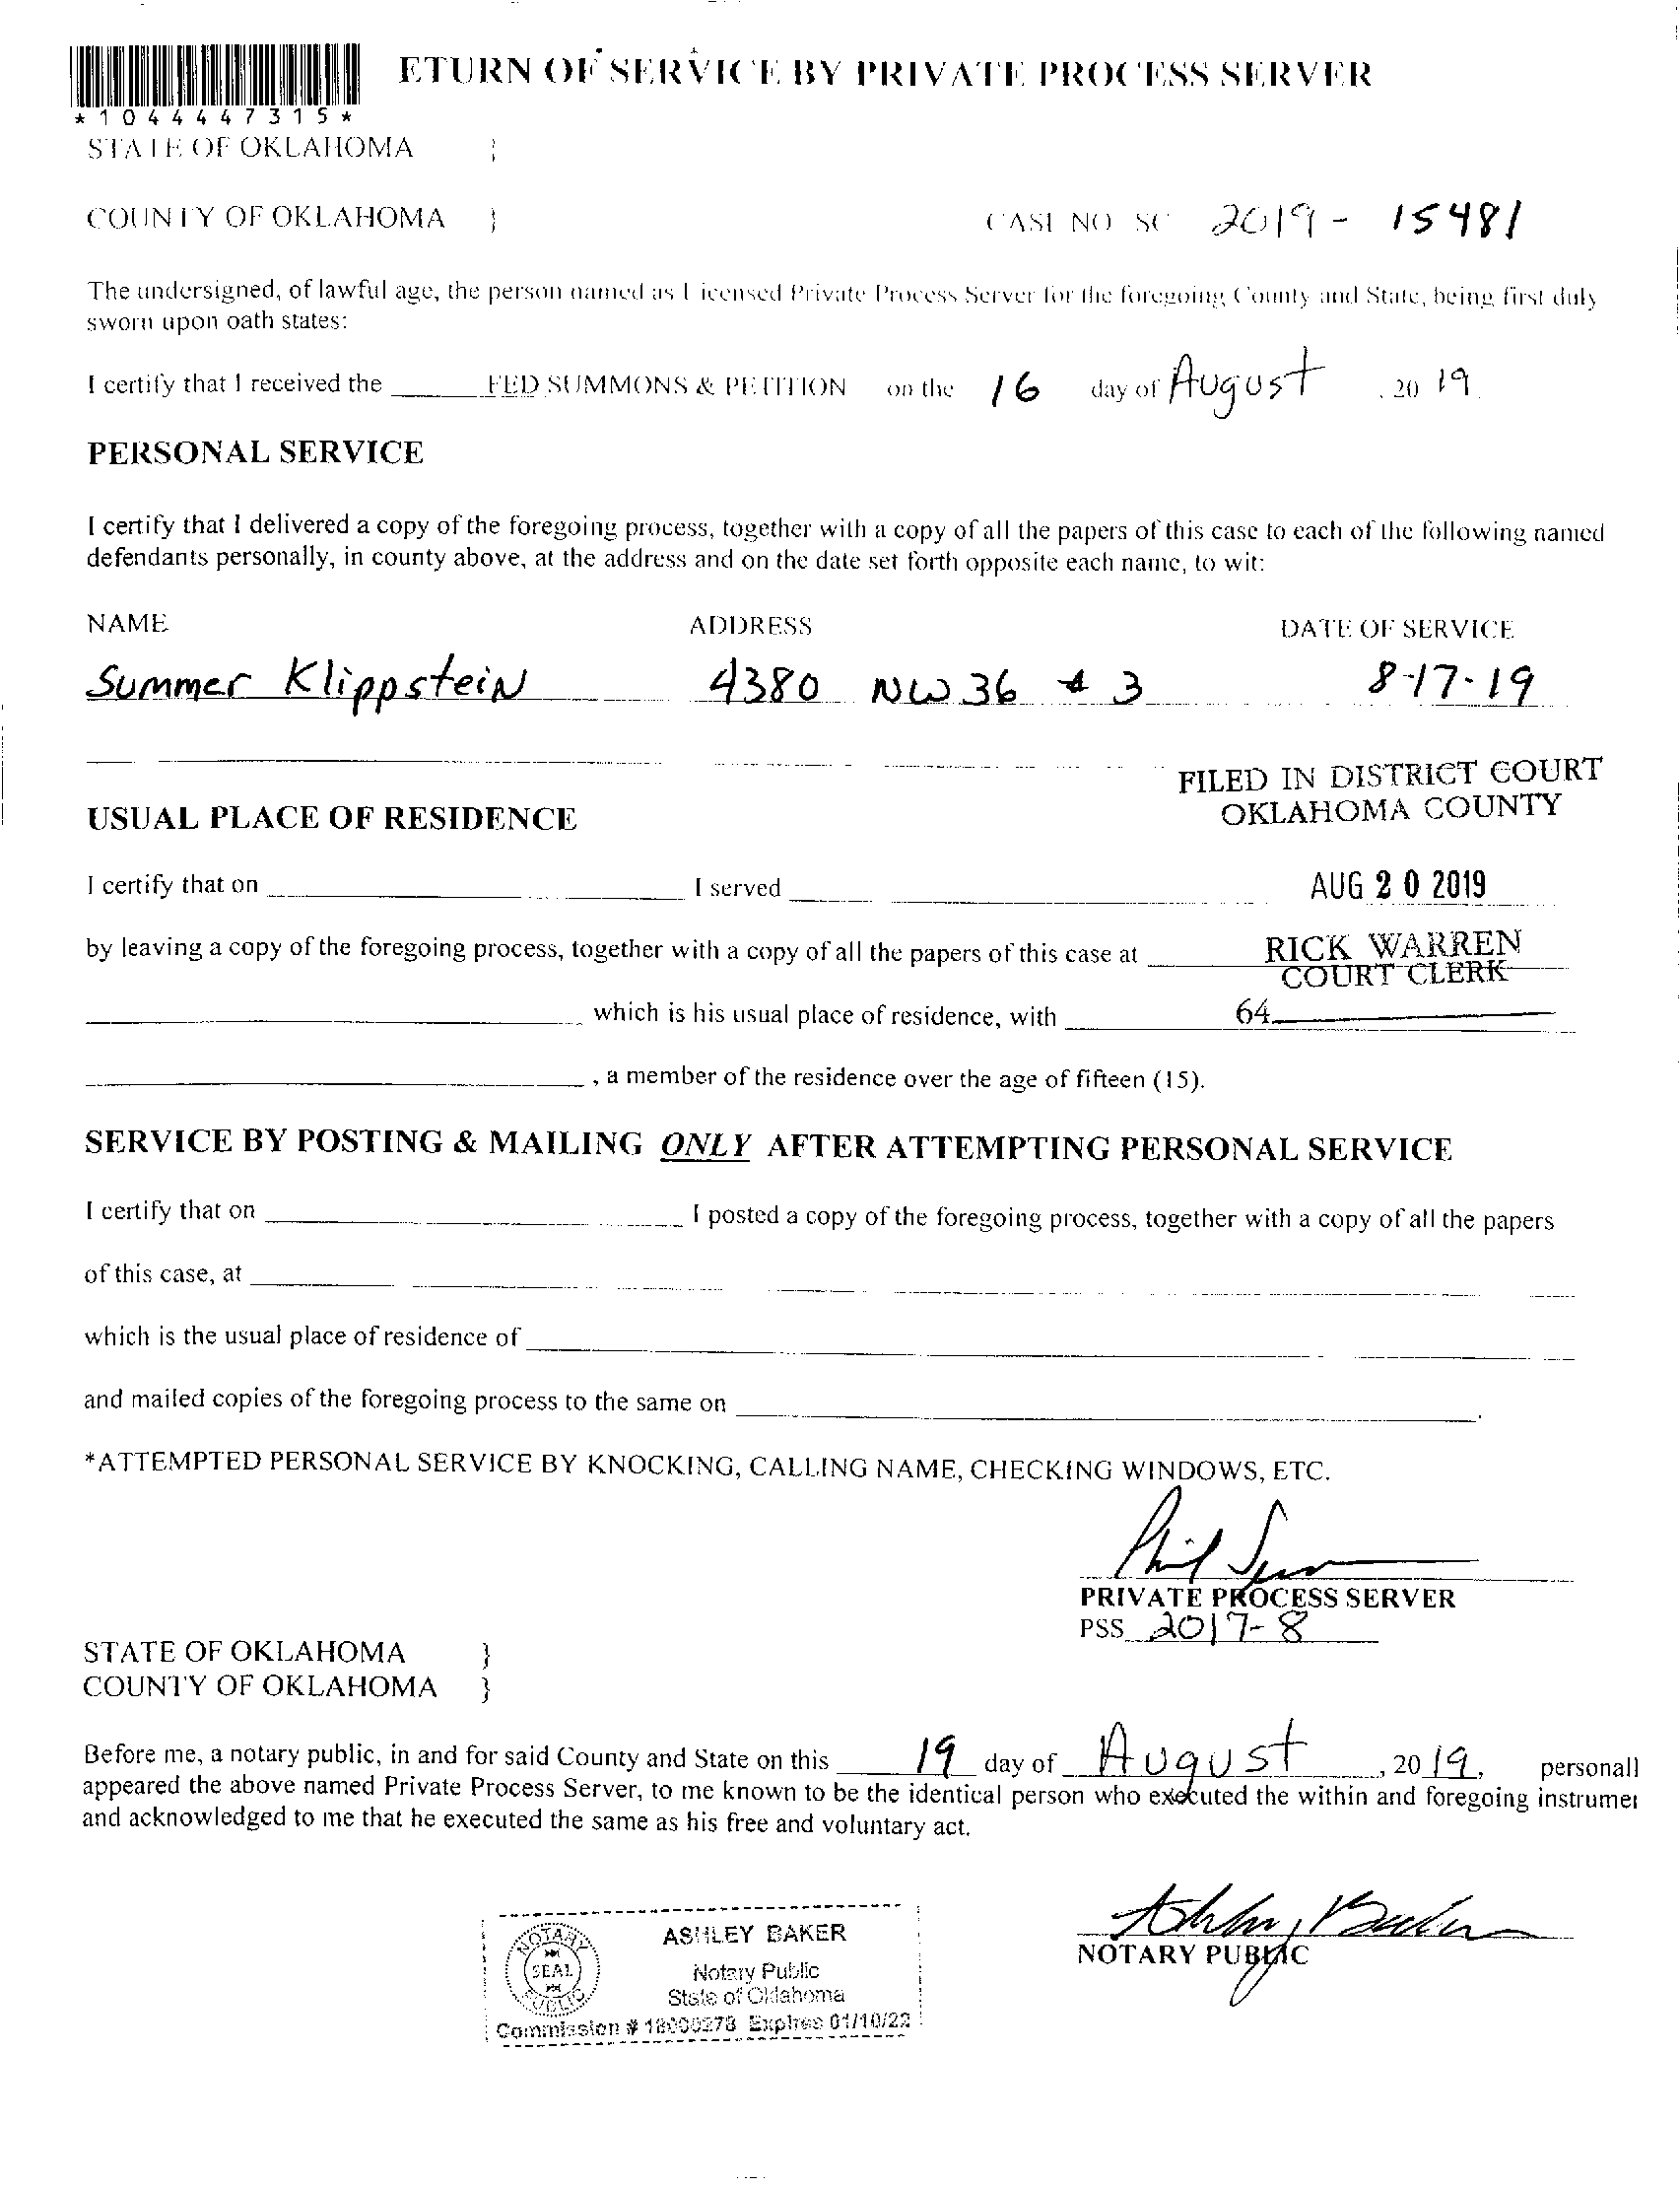 ETURN OF SERVICE BY PRIVATE PROCESS SERVER
*1044447315*
STATE OF OKLAHOMA }
COUNTY OF OKLAHOMA } CASE NO SC 2019 - 15481
The undersigned, of lawful age, the person named as Licensed Private Process Server for the foregoing County and State, being first duly
sworn upon oath states:
I certify that I received the FED SUMMONS & PETITION on the 16 day of August, 20 19.
PERSONAL SERVICE
I certify that I delivered a copy of the foregoing process, together with a copy of all the papers of this case to each of the following named
defendants personally, in county above, at the address and on the date set forth opposite each name, to wit:
NAME ADDRESS DATE OF SERVICE
Summer Klippstein 4380 NW 36 # 3 8-17-19
FILED IN DISTRICT COURT
OKLAHOMA COUNTY
USUAL PLACE OF RESIDENCE
I certify that on I served AUG 20 2019
by leaving a copy of the foregoing process, together with a copy of all the papers of this case at RICK WARREN
COURT CLERK
which is his usual place of residence, with 64
, a member of the residence over the age of fifteen (15).
SERVICE BY POSTING & MAILING ONLY AFTER ATTEMPTING PERSONAL SERVICE
I certify that on I posted a copy of the foregoing process, together with a copy of all the papers
of this case, at
which is the usual place of residence of
and mailed copies of the foregoing process to the same on .
*ATTEMPTED PERSONAL SERVICE BY KNOCKING, CALLING NAME, CHECKING WINDOWS, ETC.
Phil
PRIVATE PROCESS SERVER
PSS 2017-8
STATE OF OKLAHOMA }
COUNTY OF OKLAHOMA }
Before me, a notary public, in and for said County and State on this 19 day of August, 20 19, personall
appeared the above named Private Process Server, to me known to be the identical person who executed the within and foregoing instrumer
and acknowledged to me that he executed the same as his free and voluntary act.
Ashley Baker
NOTARY PUBLIC
NOTARY SEAL PUBLIC
ASHLEY BAKER
Notary Public
State of Oklahoma
Commission # 18000278 Expires 01/10/22